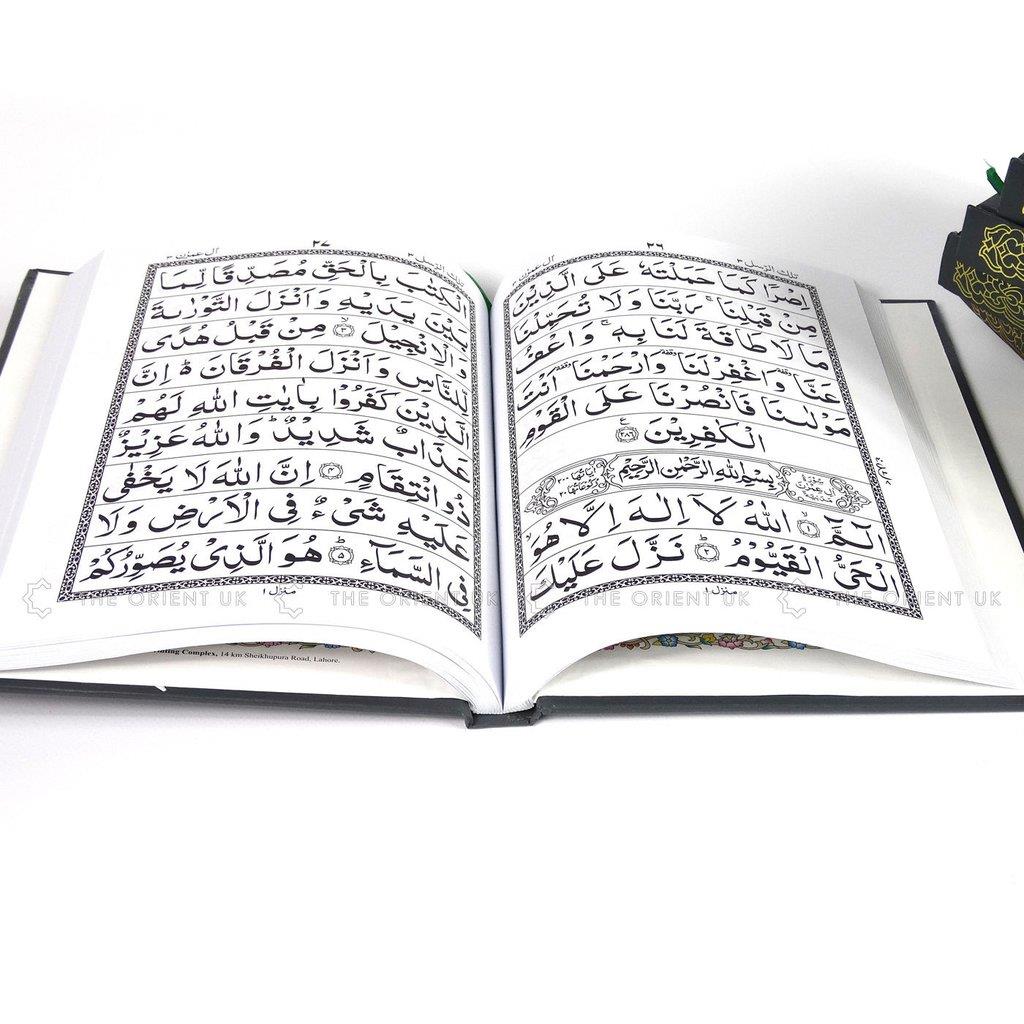 ٣٦
تلك الرسل ٣
اِصْرًا كَمَا حَمَلْتَهٗ عَلَى الَّذِيْنَ
مِنْ قَبْلِنَا ۚ رَبَّنَا وَلَا تُحَمِّلْنَا
مَا لَا طَاقَةَ لَنَا بِهٖ ۚ وَاعْفُ
عَنَّا وقفة وَاغْفِرْ لَنَا وقفة وَارْحَمْنَا وقفة اَنْتَ
مَوْلٰىنَا فَانْصُرْنَا عَلَى الْقَوْمِ
الْكٰفِرِيْنَ ﴿٢٨٦﴾ ع
بِسْمِ اللّٰهِ الرَّحْمٰنِ الرَّحِيْمِ
الٓمّٓ ﴿١﴾ اللّٰهُ لَآ اِلٰهَ اِلَّا هُوَ ۙ
الْحَيُّ الْقَيُّوْمُ ﴿٢﴾ نَزَّلَ عَلَيْكَ
منزل ١
٢٧
تلك الرسل ٣ اٰل عمرٰن ٣
الْكِتٰبَ بِالْحَقِّ مُصَدِّقًا لِّمَا
بَيْنَ يَدَيْهِ وَاَنْزَلَ التَّوْرٰىةَ
وَالْاِنْجِيْلَ ﴿٣﴾ ۙ مِنْ قَبْلُ هُدًى
لِّلنَّاسِ وَاَنْزَلَ الْفُرْقَانَ ۗ اِنَّ
الَّذِيْنَ كَفَرُوْا بِاٰيٰتِ اللّٰهِ لَهُمْ
عَذَابٌ شَدِيْدٌ ۗ وَاللّٰهُ عَزِيْزٌ
ذُو انْتِقَامٍ ﴿٤﴾ اِنَّ اللّٰهَ لَا يَخْفٰى
عَلَيْهِ شَيْءٌ فِى الْاَرْضِ وَلَا
فِى السَّمَآءِ ﴿٥﴾ ۗ هُوَ الَّذِيْ يُصَوِّرُكُمْ
منزل ١
THE ORIENT UK THE ORIENT UK THE ORIENT UK THE ORIENT UK
nting Complex, 14 km Sheikhupura Road, Lahore.